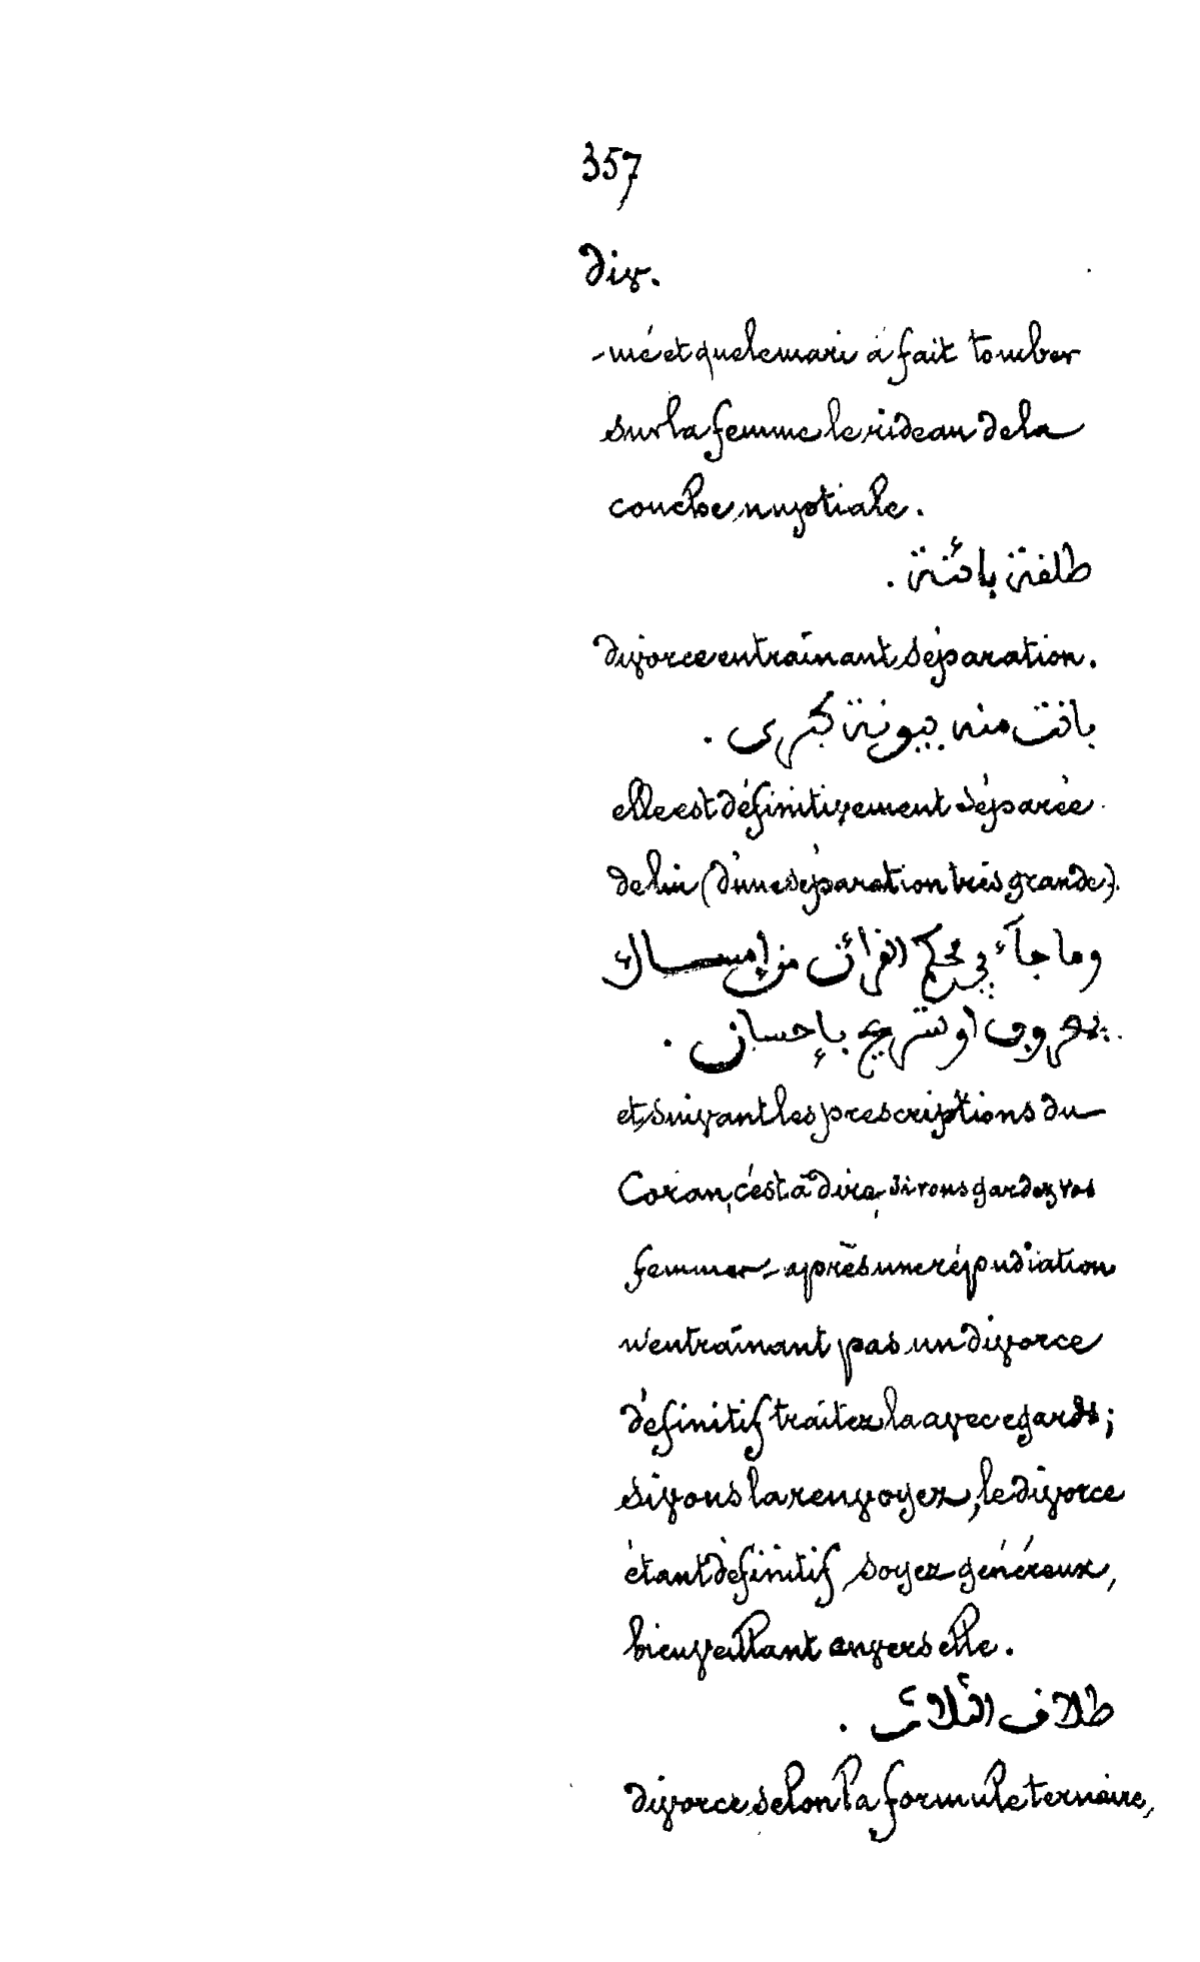 357
div.
-mé et que le mari a fait tomber
sur la femme le rideau de la
couche nuptiale.
طلقة بائنة .
divorce entraînant séparation.
بانت منه بينونة كبرى .
elle est définitivement séparée
de lui (d'une séparation très grande).
وما جآء في محكم القرآن من إمساك
بمعروف او تسريح بإحسان .
et suivant les prescriptions du
Coran, c'est à dire, si vous gardez vos
femmes - après une répudiation
n'entraînant pas un divorce
définitif traitez la avec egards;
si vous la renvoyez, le divorce
étant définitif, soyez généreux,
bienveillant envers elle.
طلاق الثلاث .
divorce selon la formule ternaire,